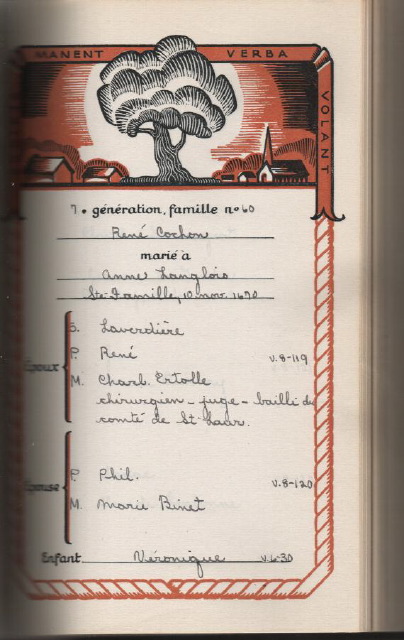 MANENT VERBA VOLANT
7e génération, famille no 60
René Cochon
marié à
Anne Langlois
Ste-Famille, 10 nov. 1670
Époux
S. Laverdière
P. René v.8-119
M. Charl. Ertolle
chirurgien - juge - bailli du
comté de St-Laur.
Épouse
P. Phil. v.8-120
M. Marie Binet
Enfant Véronique v.6-30